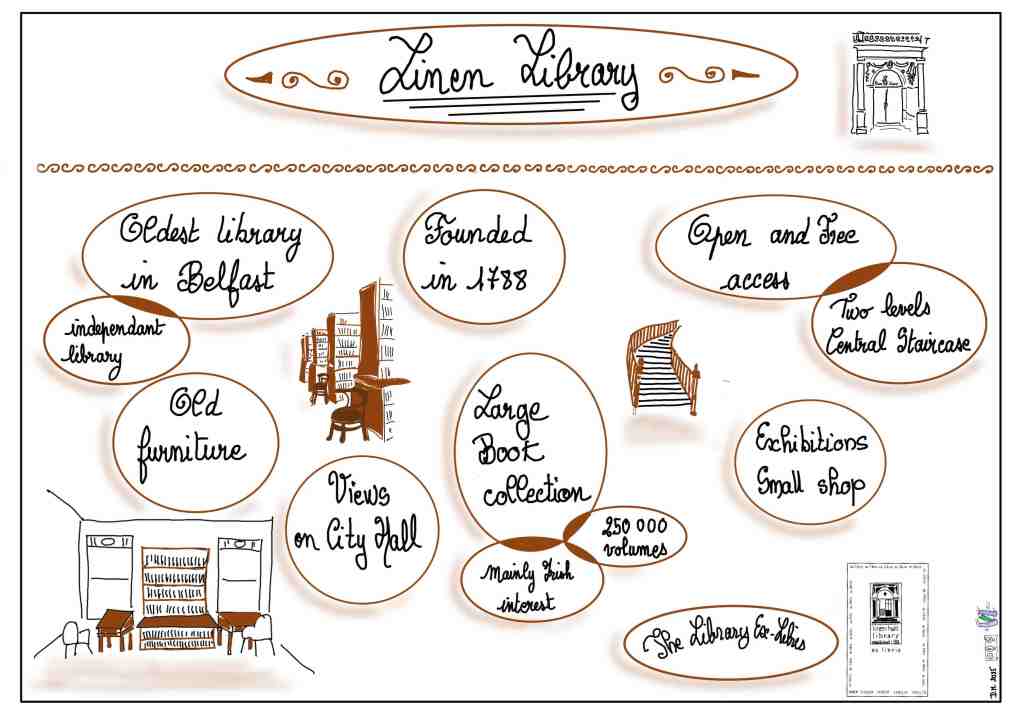 Linen Library
Oldest library
in Belfast
independant
library
Founded
in 1788
Open and Free
access
Two levels
Central Staircase
Old
furniture
Views
on City Hall
Large
Book
collection
250 000
volumes
Mainly Irish
interest
Exhibitions
Small shop
The Library Ex-Libris
linen hall
library
ex libris